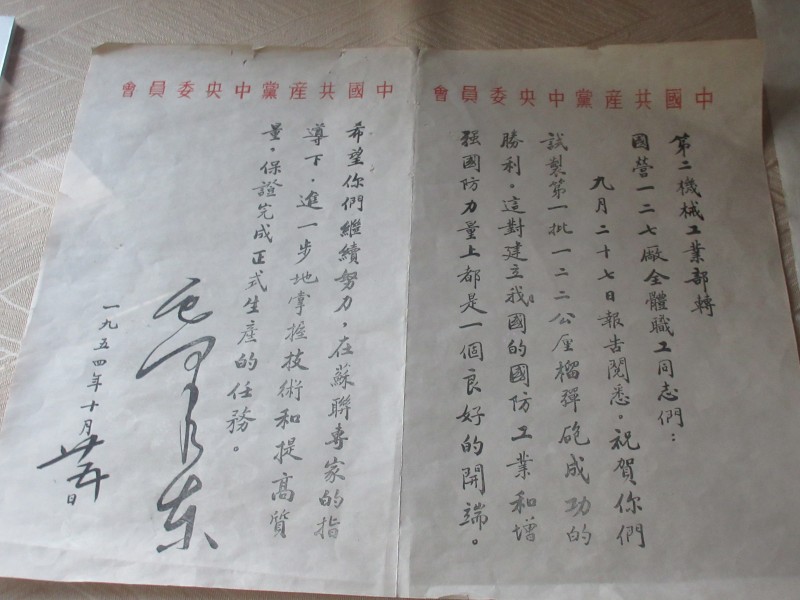 中國共産黨中央委員會
第二機械工業部轉
國營一二七廠全體職工同志們：
九月二十七日報告閱悉。祝賀你們
試製第一批一二二公厘榴彈砲成功的
勝利。這對建立我國的國防工業和增
强國防力量上都是一個良好的開端。
中國共産黨中央委員會
希望你們繼續努力，在蘇聯專家的指
導下，進一步地掌握技術和提高質
量，保證完成正式生產的任務。
毛澤东
一九五四年十月廿五日